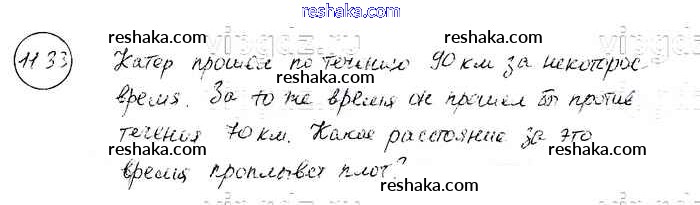 reshaka.com
1133
Катер прошел по течению 90 км за некоторое
время. За то же время он прошел бы против
течения 70 км. Какое расстояние за это
время проплывет плот?
reshaka.com
reshaka.com
reshaka.com
reshaka.com
reshaka.com
reshaka.com
reshaka.com
reshaka.com